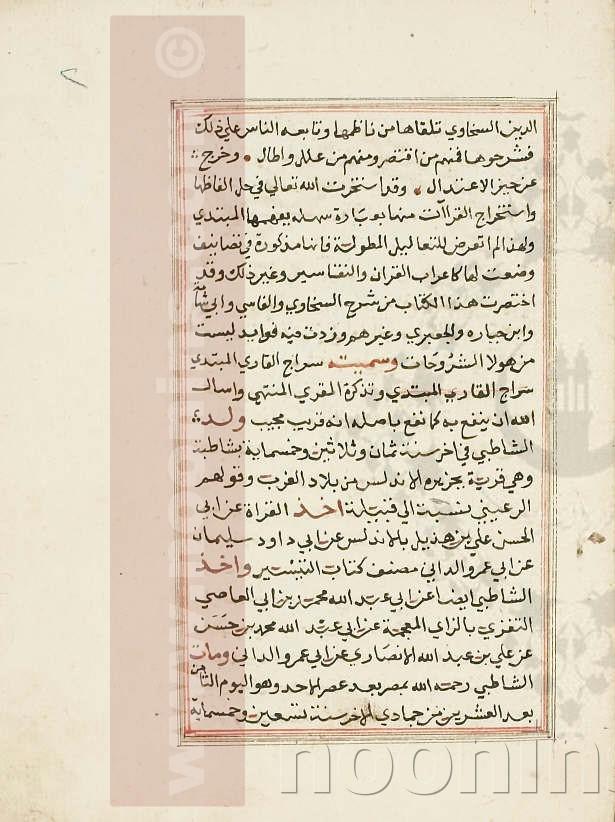 الدين السخاوي تلقاها من ناظمها وتابعه الناس علي ذلك
فشرحوها فمنهم من اقتصر ومنهم من علل واطال وخرج
عن حيز الاعتدال وقد استخرت الله تعالي في حل الفاظها
واستخراج القراآت منها بعبارة سهله يفهمها المبتدي
ولهذا لم اتعرض للتعاليل المطولة فانها مذكورة في تصانيف
وضعت لها كاعراب القران والتفاسير وغير ذلك وقد
اختصرت هذا الكتاب من شرح السخاوي والفاسي وابي شامة
وابن جباره والجعبري وغيرهم وزدت فيه فوايد ليست
من هولا الشروحات وسميته سراج القاري المبتدي
سراج القاري المبتدي وتذكرة المقري المنتهي واسال
الله ان ينفع به كما نفع باصله انه قريب مجيب ولد
الشاطبي في اخر سنة ثمان وثلاثين وخمسماية بشاطبة
وهي قرية بجزيره الاندلس من بلاد الغرب وقولهم
الرعيني نسبت الي قبيلة اخذ القراة عن ابي
الحسن علي بن هذيل بالاندلس عن ابي داود سليمان
عن ابي عمرو الداني مصنف كتاب التيسير واخذ
الشاطبي ايضا عن ابي عبد الله محمد بن ابي العاصي
النفزي بالزاي المعجمة عن ابي عبد الله محمد بن حسن
عن علي بن عبد الله الانصاري عن ابي عمرو الداني ومات
الشاطبي رحمه الله بمصر بعد عصر الاحد وهو اليوم الثامن
بعد العشرين من جمادي الاخر سنة تسعين وخمسماية
noonin